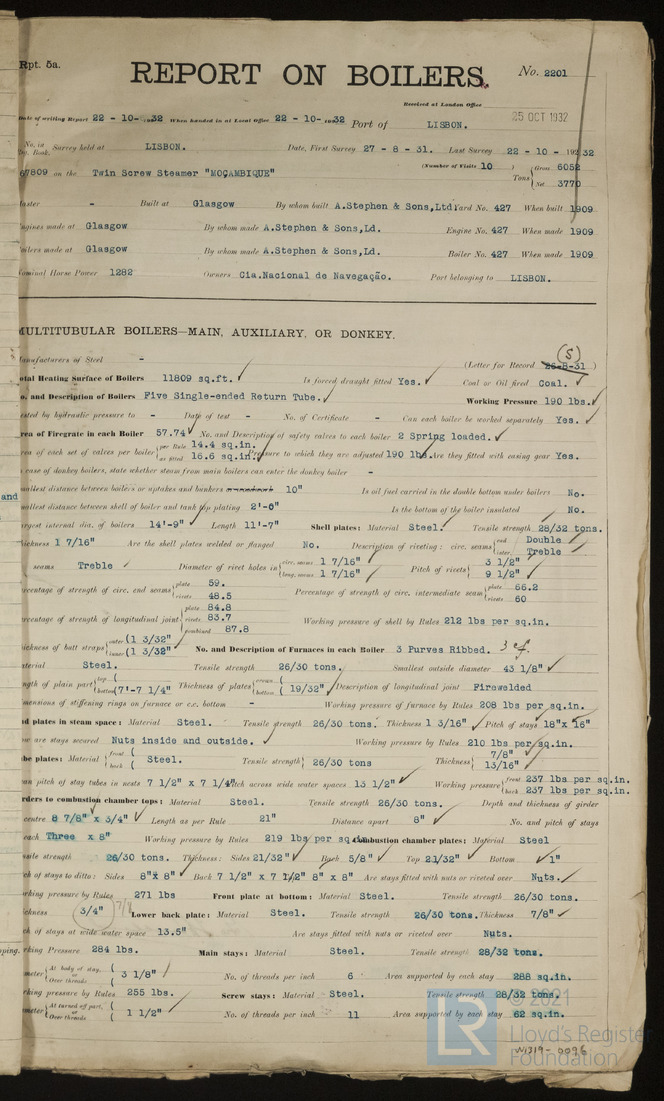 Rpt. 5a.
REPORT ON BOILERS.
No. 2201
Received at London Office
25 OCT 1932
Date of writing Report 22 - 10- 1932 When handed in at Local Office 22 - 10- 1932 Port of LISBON.
No. in Reg. Book. Survey held at LISBON. Date, First Survey 27 - 8 - 31. Last Survey 22 - 10 - 1932
(Number of Visits 10 )
67809 on the Twin Screw Steamer "MOÇAMBIQUE" Tons { Gross 6052 Net 3770
Master - Built at Glasgow By whom built A.Stephen & Sons,Ltd. Yard No. 427 When built 1909
Engines made at Glasgow By whom made A.Stephen & Sons,Ld. Engine No. 427 When made 1909
Boilers made at Glasgow By whom made A.Stephen & Sons,Ld. Boiler No. 427 When made 1909
Nominal Horse Power 1282 Owners Cia.Nacional de Navegação. Port belonging to LISBON.
MULTITUBULAR BOILERS—MAIN, AUXILIARY, OR DONKEY.
Manufacturers of Steel - (Letter for Record 26-8-31 (S) )
Total Heating Surface of Boilers 11809 sq.ft. Is forced draught fitted Yes. Coal or Oil fired Coal.
No. and Description of Boilers Five Single-ended Return Tube. Working Pressure 190 lbs.
Tested by hydraulic pressure to - Date of test - No. of Certificate - Can each boiler be worked separately Yes.
Area of Firegrate in each Boiler 57.74 No. and Description of safety valves to each boiler 2 Spring loaded.
Area of each set of valves per boiler { per Rule 14.4 sq.in. as fitted 16.6 sq.in. Pressure to which they are adjusted 190 lbs. Are they fitted with easing gear Yes.
In case of donkey boilers, state whether steam from main boilers can enter the donkey boiler -
Smallest distance between boilers or uptakes and bunkers 10" Is oil fuel carried in the double bottom under boilers No.
Smallest distance between shell of boiler and tank top plating 2'-0" Is the bottom of the boiler insulated No.
Largest internal dia. of boilers 14'-9" Length 11'-7" Shell plates: Material Steel. Tensile strength 28/32 tons.
Thickness 1 7/16" Are the shell plates welded or flanged No. Description of riveting: circ. seams { end Double inter. Treble
seams Treble Diameter of rivet holes in { circ. seams 1 7/16" long. seams 1 7/16" Pitch of rivets { 3 1/2" 9 1/2"
Percentage of strength of circ. end seams { plate 59. rivets 48.5 Percentage of strength of circ. intermediate seam { plate 66.2 rivets 60
Percentage of strength of longitudinal joint { plate 84.8 rivets 83.7 combined 87.8 Working pressure of shell by Rules 212 lbs per sq.in.
Thickness of butt straps { outer (1 3/32" inner (1 3/32" No. and Description of Furnaces in each Boiler 3 Purves Ribbed. 3 cf.
Material Steel. Tensile strength 26/30 tons. Smallest outside diameter 43 1/8"
Length of plain part { top ( bottom (7'-7 1/4" Thickness of plates { crown ( bottom ( 19/32" Description of longitudinal joint Firewelded
Dimensions of stiffening rings on furnace or c.c. bottom - Working pressure of furnace by Rules 208 lbs per sq.in.
End plates in steam space: Material Steel. Tensile strength 26/30 tons. Thickness 1 3/16" Pitch of stays 18"x 16"
How are stays secured Nuts inside and outside. Working pressure by Rules 210 lbs per sq.in.
Tube plates: Material { front ( back ( Steel. Tensile strength { 26/30 tons Thickness { 7/8" 13/16"
Mean pitch of stay tubes in nests 7 1/2" x 7 1/4" Pitch across wide water spaces 13 1/2" Working pressure { front 237 lbs per sq.in. back 237 lbs per sq.in.
Girders to combustion chamber tops: Material Steel. Tensile strength 26/30 tons. Depth and thickness of girder
at centre 8 7/8" x 3/4" Length as per Rule 21" Distance apart 8" No. and pitch of stays
in each Three x 8" Working pressure by Rules 219 lbs per sq.in. Combustion chamber plates: Material Steel
Tensile strength 26/30 tons. Thickness: Sides 21/32" Back 5/8" Top 21/32" Bottom 1"
Pitch of stays to ditto: Sides 8"x 8" Back 7 1/2" x 7 1/2" 8" x 8" Are stays fitted with nuts or riveted over Nuts.
Working pressure by Rules 271 lbs Front plate at bottom: Material Steel. Tensile strength 26/30 tons.
Thickness 3/4" 7/8 Lower back plate: Material Steel. Tensile strength 26/30 tons. Thickness 7/8"
Pitch of stays at wide water space 13.5" Are stays fitted with nuts or riveted over Nuts.
Working Pressure 284 lbs. Main stays: Material Steel. Tensile strength 28/32 tons.
Diameter { At body of stay, or Over threads ( 3 1/8" No. of threads per inch 6 Area supported by each stay 288 sq.in.
Working pressure by Rules 255 lbs. Screw stays: Material Steel. Tensile strength 28/32 tons.
Diameter { At turned off part, or Over threads ( 1 1/2" No. of threads per inch 11 Area supported by each stay 62 sq.in.
and
© 2021
LR
Lloyd's Register
Foundation
W1319-0096